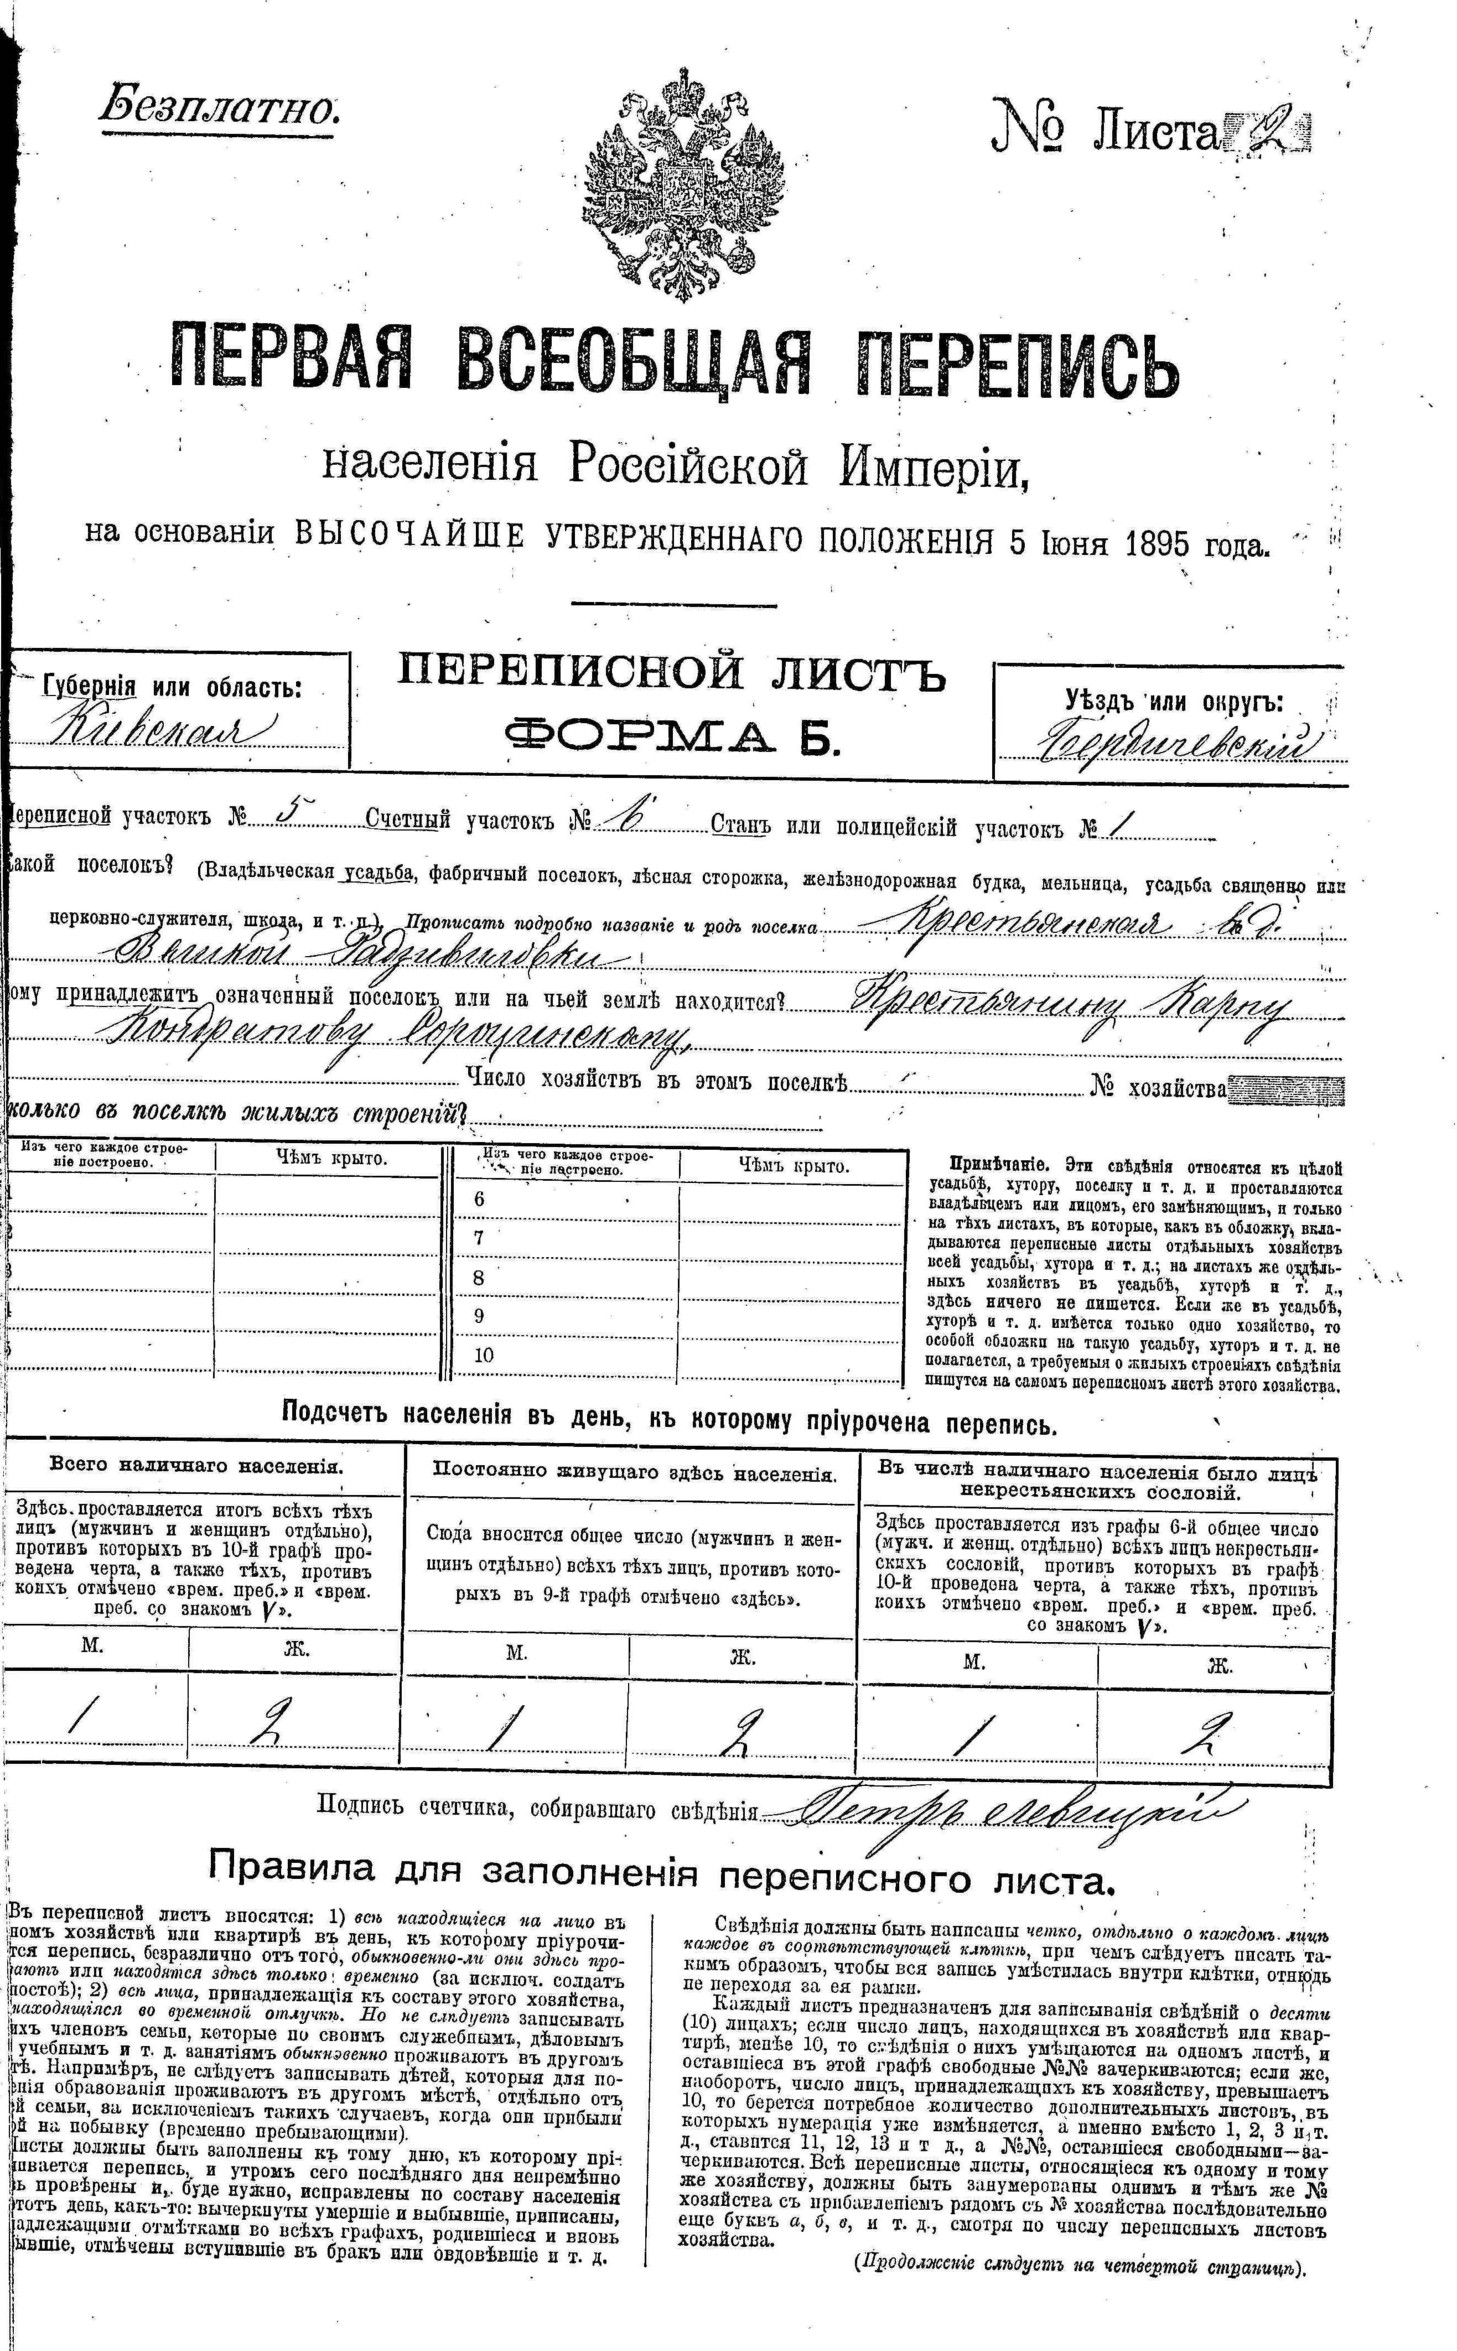 Безплатно.
№ Листа 2
ПЕРВАЯ ВСЕОБЩАЯ ПЕРЕПИСЬ
населенія Россійской Имперіи,
на основаніи ВЫСОЧАЙШЕ УТВЕРЖДЕННАГО ПОЛОЖЕНІЯ 5 Іюня 1895 года.
Губернія или область:
Кіевская
ПЕРЕПИСНОЙ ЛИСТЪ
ФОРМА Б.
Уѣздъ или округъ:
Бердичевскій
Переписной участокъ № 5 Счетный участокъ № 6 Станъ или полицейскій участокъ № 1
акой поселокъ? (Владѣльческая усадьба, фабричный поселокъ, лѣсная сторожка, желѣзнодорожная будка, мельница, усадьба священно или
церковно-служителя, школа, и т. п.) Прописать подробно названіе и родъ поселка Крестьянская въ д.
Великой Радзивиловки
ому принадлежитъ означенный поселокъ или на чьей землѣ находится? Крестьянину Карпу
Кондратову Сорочинскому,
Число хозяйствъ въ этомъ поселкѣ № хозяйства
колько въ поселкѣ жилыхъ строеній?
Изъ чего каждое строе-
ніе построено.
Чѣмъ крыто.
Изъ чего каждое строе-
ніе построено.
Чѣмъ крыто.
6
7
8
9
10
Примѣчаніе. Эти свѣдѣнія относятся къ цѣлой
усадьбѣ, хутору, поселку и т. д. и проставляются
владѣльцемъ или лицомъ, его замѣняющимъ, и только
на тѣхъ листахъ, въ которые, какъ въ обложку, вкла-
дываются переписные листы отдѣльныхъ хозяйствъ
всей усадьбы, хутора и т. д.; на листахъ же отдѣль-
ныхъ хозяйствъ въ усадьбѣ, хуторѣ и т. д.,
здѣсь ничего не пишется. Если же въ усадьбѣ,
хуторѣ и т. д. имѣется только одно хозяйство, то
особой обложки на такую усадьбу, хуторъ и т. д. не
полагается, а требуемыя о жилыхъ строеніяхъ свѣдѣнія
пишутся на самомъ переписномъ листѣ этого хозяйства.
Подсчетъ населенія въ день, къ которому пріурочена перепись.
Всего наличнаго населенія.
Здѣсь проставляется итогъ всѣхъ тѣхъ
лицъ (мужчинъ и женщинъ отдѣльно),
противъ которыхъ въ 10-й графѣ про-
ведена черта, а также тѣхъ, противъ
коихъ отмѣчено «врем. преб.» и «врем.
преб. со знакомъ V».
Постоянно живущаго здѣсь населенія.
Сюда вносится общее число (мужчинъ и жен-
щинъ отдѣльно) всѣхъ тѣхъ лицъ, противъ кото-
рыхъ въ 9-й графѣ отмѣчено «здѣсь».
Въ числѣ наличнаго населенія было лицъ
некрестьянскихъ сословій.
Здѣсь проставляется изъ графы 6-й общее число
(мужч. и женщ. отдѣльно) всѣхъ лицъ некрестьян-
скихъ сословій, противъ которыхъ въ графѣ
10-й проведена черта, а также тѣхъ, противъ
коихъ отмѣчено «врем. преб.» и «врем. преб.
со знакомъ V».
М. Ж. М. Ж. М. Ж.
1 2 1 2 1 2
Подпись счетчика, собиравшаго свѣдѣнія Петръ Левицкій
Правила для заполненія переписного листа.
Въ переписной листъ вносятся: 1) всѣ находящіеся на лицо въ
номъ хозяйствѣ или квартирѣ въ день, къ которому пріурочи-
тся перепись, безразлично отъ того, обыкновенно-ли они здѣсь про-
аютъ или находятся здѣсь только временно (за исключ. солдатъ
постоѣ); 2) всѣ лица, принадлежащія къ составу этого хозяйства,
находящіяся во временной отлучкѣ. Но не слѣдуетъ записывать
ихъ членовъ семьи, которые по своимъ служебнымъ, дѣловымъ
учебнымъ и т. д. занятіямъ обыкновенно проживаютъ въ другомъ
тѣ. Напримѣръ, не слѣдуетъ записывать дѣтей, которыя для по-
нія образованія проживаютъ въ другомъ мѣстѣ, отдѣльно отъ
й семьи, за исключеніемъ такихъ случаевъ, когда они прибыли
й на побывку (временно пребывающими).
Листы должны быть заполнены къ тому дню, къ которому прі-
чивается перепись, и утромъ сего послѣдняго дня непремѣнно
ь провѣрены и, буде нужно, исправлены по составу населенія
тотъ день, какъ-то: вычеркнуты умершіе и выбывшіе, приписаны,
адлежащими отмѣтками во всѣхъ графахъ, родившіеся и вновь
ывшіе, отмѣчены вступившіе въ бракъ или овдовѣвшіе и т. д.
Свѣдѣнія должны быть написаны четко, отдѣльно о каждомъ лицѣ
каждое въ соотвѣтствующей клѣткѣ, при чемъ слѣдуетъ писать та-
кимъ образомъ, чтобы вся запись умѣстилась внутри клѣтки, отнюдь
не переходя за ея рамки.
Каждый листъ предназначенъ для записыванія свѣдѣній о десяти
(10) лицахъ; если число лицъ, находящихся въ хозяйствѣ или квар-
тирѣ, менѣе 10, то свѣдѣнія о нихъ умѣщаются на одномъ листѣ, и
оставшіеся въ этой графѣ свободные №№ зачеркиваются; если же,
наоборотъ, число лицъ, принадлежащихъ къ хозяйству, превышаетъ
10, то берется потребное количество дополнительныхъ листовъ, въ
которыхъ нумерація уже измѣняется, а именно вмѣсто 1, 2, 3 и т.
д., ставится 11, 12, 13 и т д., а №№, оставшіеся свободными—за-
черкиваются. Всѣ переписные листы, относящіеся къ одному и тому
же хозяйству, должны быть занумерованы однимъ и тѣмъ же №
хозяйства съ прибавленіемъ рядомъ съ № хозяйства послѣдовательно
еще буквъ а, б, в, и т. д., смотря по числу переписныхъ листовъ
хозяйства.
(Продолженіе слѣдуетъ на четвертой страницѣ).